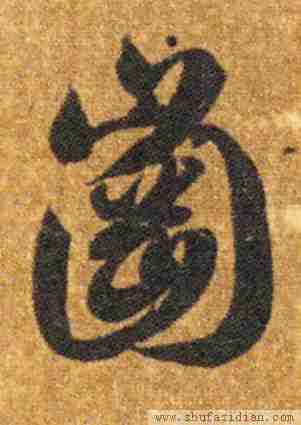 齒
www.shufazidian.com